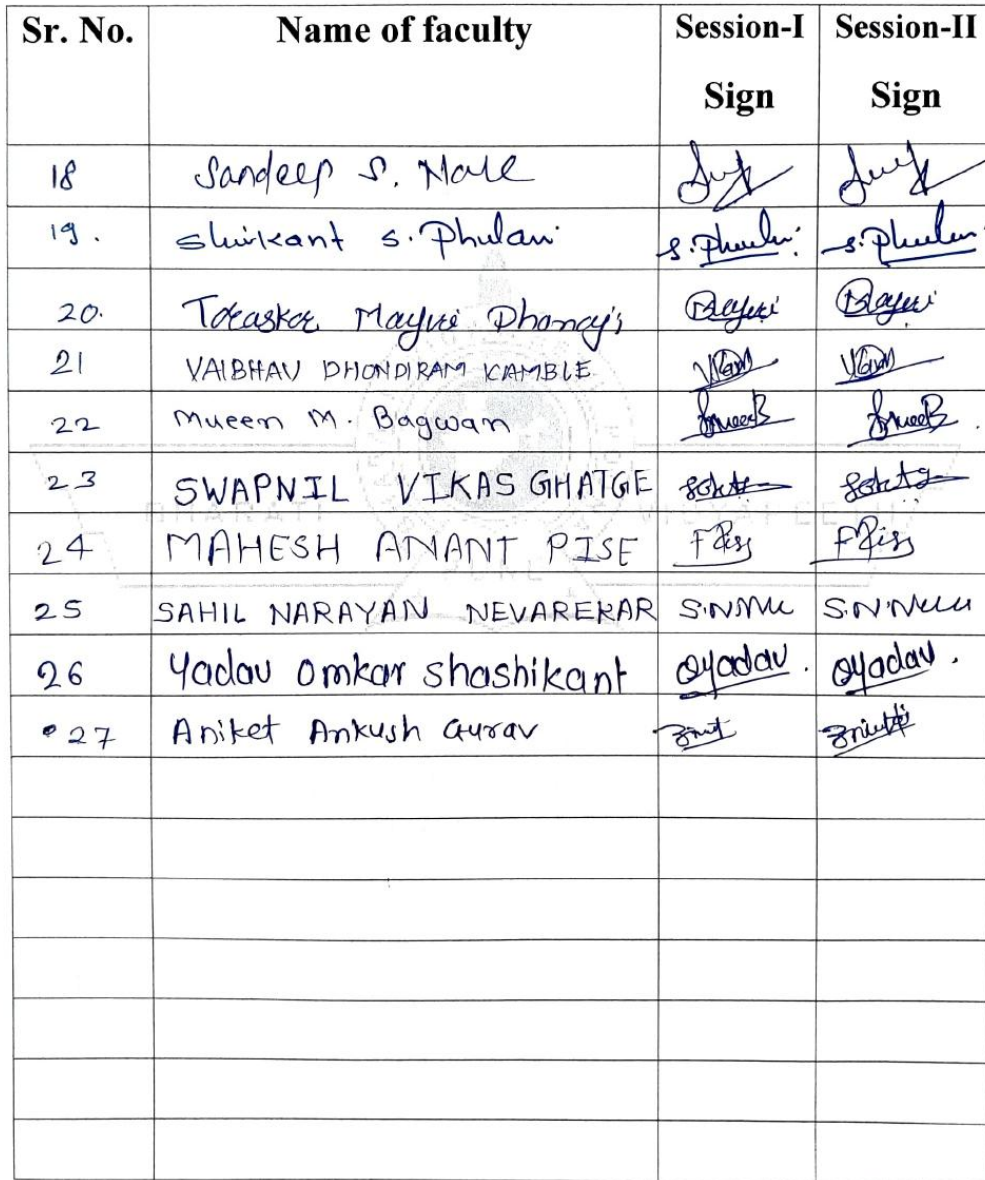 Sr. No. Name of faculty Session-I Sign Session-II Sign
18 Sandeep S. Nale
19. Shrikant S. Phulari S. Phulari S. Phulari
20. Toraskar Mayuri Dhanaji Mayuri Mayuri
21 VAIBHAV DHONDIRAM KAMBLE
22 Mueen M. Bagwan MueenB MueenB
23 SWAPNIL VIKAS GHATGE
BHARATI VIDYAPEETH
24 MAHESH ANANT PISE
PUNE
25 SAHIL NARAYAN NEVAREKAR
26 Yadav Omkar Shashikant OYadav. OYadav.
27 Aniket Ankush Gurav